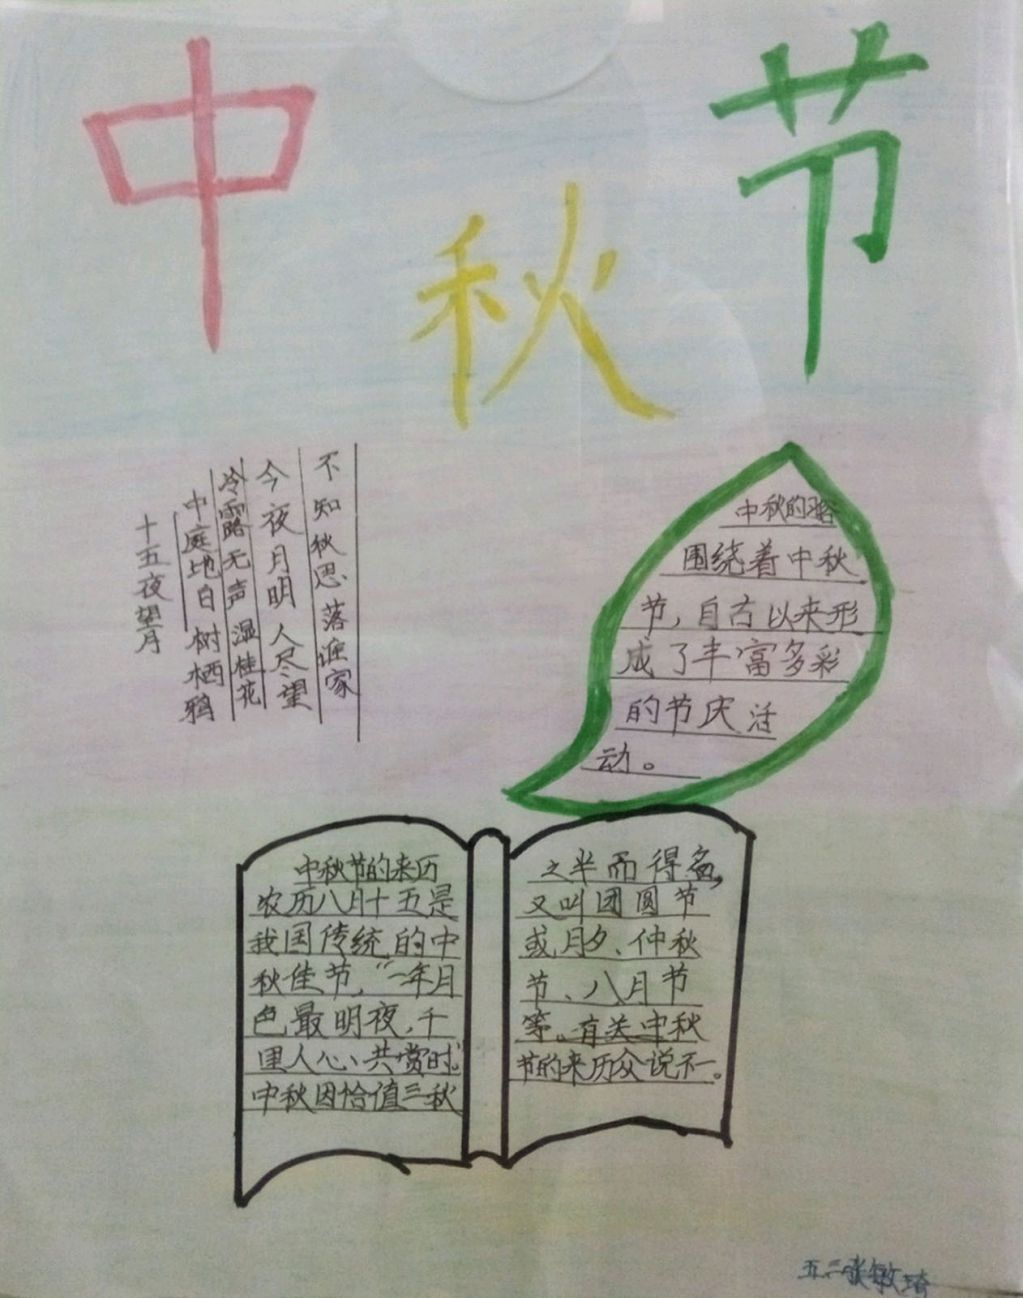 中秋节
十五夜望月
中庭地白树栖鸦
冷露无声湿桂花
今夜月明人尽望
不知秋思落谁家
中秋的
围绕着中秋
节，自古以来形
成了丰富多彩
的节庆活
动。
中秋节的来历
农历八月十五是
我国传统的中
秋佳节，“一年月
色最明夜，千
里人心共赏时。
中秋因恰值三秋
之半而得名，
又叫团圆节
或月夕、仲秋
节、八月节
等。有关中秋
节的来历众说不一。
五二张敏琦